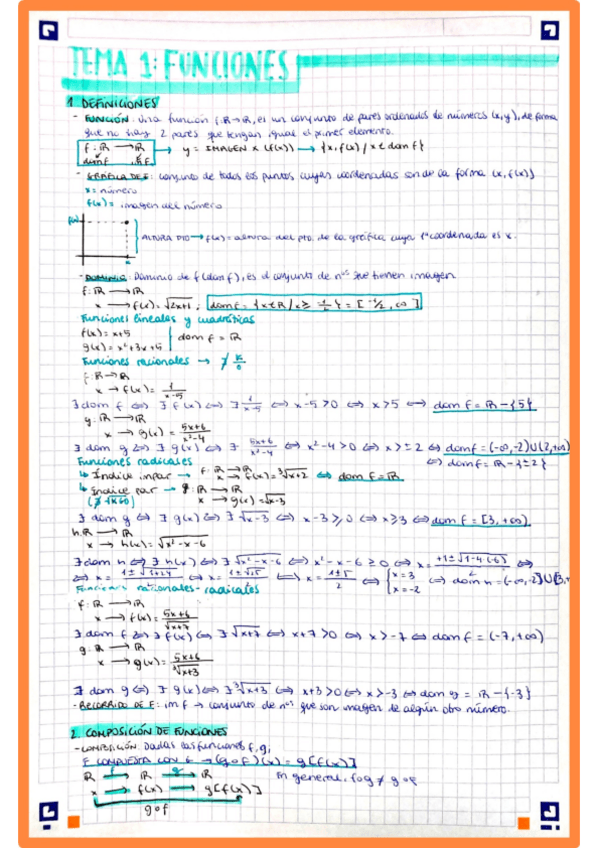 TEMA 1: FUNCIONES
1. DEFINICIONES
- FUNCIÓN: Una función f: ℝ→ℝ, es un conjunto de pares ordenados de números (x,y), de forma
que no hay 2 pares que tengan igual el primer elemento.
f: ℝ → ℝ → y = IMAGEN x (f(x)) → {x, f(x) / x ∈ dom f}
domf im F
- GRÁFICA DE F: conjunto de todos los puntos cuyas coordenadas son de la forma (x, f(x))
x = número
f(x) = imagen del número
f(x)
ALTURA PTO → f(x) = altura del pto. de la gráfica cuya 1ª coordenada es x.
x
- DOMINIO: Dominio de f (dom f), es el conjunto de nºs que tienen imagen.
f: ℝ → ℝ
x → f(x) = √2x+1 ; domf = {x ∈ ℝ / x ≥ -1/2} = [-1/2, ∞]
Funciones lineales y cuadráticas
f(x) = x+5
dom f = ℝ
g(x) = x²+3x+5
Funciones racionales → ∄ K/0
f: ℝ → ℝ
x → f(x) = 1/x-5
∃ dom f ⇔ ∃ f(x) ⇔ ∃ 1/x-5 ⇔ x-5 > 0 ⇔ x > 5 ⇔ dom f = ℝ - {5}
g: ℝ → ℝ
x → g(x) = 5x+6/x²-4
∃ dom g ⇔ ∃ g(x) ⇔ ∃ 5x+6/x²-4 ⇔ x²-4 > 0 ⇔ x > ±2 ⇔ domf = (-∞,-2)U(2,+∞)
⇔ domf = ℝ - {±2}
Funciones radicales
↳ Índice impar → f: ℝ → ℝ
x → f(x) = ³√x+2 ⇔ dom f = ℝ
↳ Índice par → g: ℝ → ℝ
x → g(x) = √x-3
∃ dom g ⇔ ∃ g(x) ⇔ ∃ √x-3 ⇔ x-3 ≥ 0 ⇔ x ≥ 3 ⇔ dom f = [3, +∞)
h: ℝ → ℝ
x → h(x) = √x²-x-6
∃ dom h ⇔ ∃ h(x) ⇔ ∃ √x²-x-6 ⇔ x²-x-6 ≥ 0 ⇔ x = +1±√1-4·(-6)/2 ⇔
⇔ x = 1±√1+24/2 ⇔ x = 1±√25/2 ⇔ x = 1±5/2 ⇔ { x = 3 x = -2 ⇔ dom h = (-∞,-2]U[3,+
Funciones racionales-radicales
f: ℝ → ℝ
x → f(x) = 5x+6/√x+7
∃ dom f ⇔ ∃ f(x) ⇔ ∃ √x+7 ⇔ x+7 > 0 ⇔ x > -7 ⇔ dom f = (-7, +∞)
g: ℝ → ℝ
x → g(x) = 5x+6/³√x+3
∃ dom g ⇔ ∃ g(x) ⇔ ∃ ³√x+3 ⇔ x+3 > 0 ⇔ x > -3 ⇔ dom g = ℝ - {-3}
- RECORRIDO DE F: im f → conjunto de nºs que son imagen de algún otro número.
2. COMPOSICIÓN DE FUNCIONES
- COMPOSICIÓN: Dadas las funciones f, g,
F COMPUESTA CON G → (g∘f)(x) = g[f(x)]
ℝ f→ ℝ g→ ℝ En general, f∘g ≠ g∘f
x → f(x) → g[f(x)]
g∘f